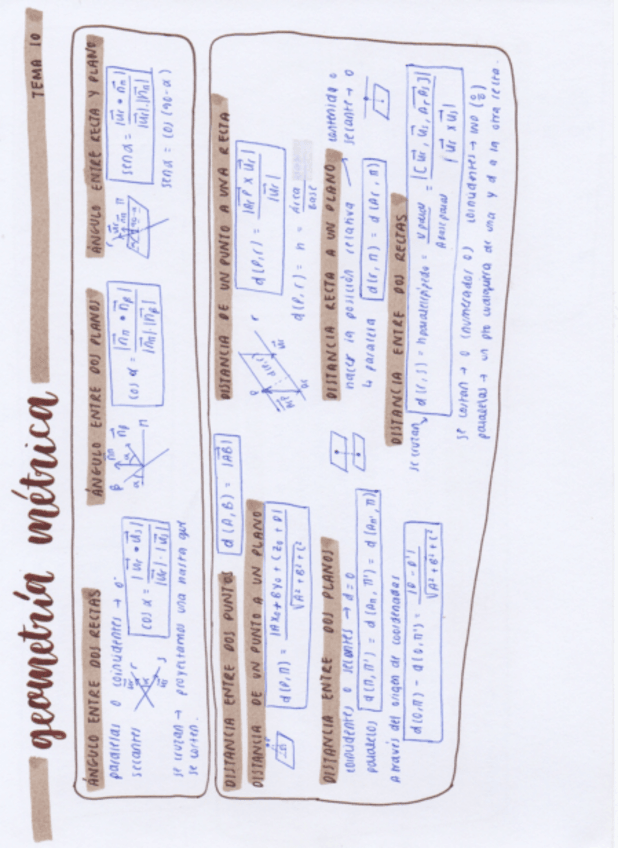 geometría métrica
TEMA 10
ÁNGULO ENTRE DOS RECTAS
paralelas o coincidentes → 0
secantes
r
s
α
cos α = |ur • us| / |ur| · |us|
se cruzan → proyectamos una hasta que
se corten.
ÁNGULO ENTRE DOS PLANOS
β
π
α
cos α = |nπ • nβ| / |nπ| · |nβ|
ÁNGULO ENTRE RECTA Y PLANO
sen α = |ur • nπ| / |ur| · |nπ|
sen α = cos (90-α)
DISTANCIA ENTRE DOS PUNTOS
d (A, B) = |AB|
DISTANCIA DE UN PUNTO A UN PLANO
d (P, π) = |AX0 + BY0 + CZ0 + D| / √A² + B² + C²
DISTANCIA ENTRE DOS PLANOS
coincidentes o secantes → d = 0
paralelos
d (π, π') = d (Aπ, π') = d (Aπ', π)
A través del origen de coordenadas
d (O, π) - d (O, π') = |D - D'| / √A² + B² + C²
DISTANCIA DE UN PUNTO A UNA RECTA
d (P, r) = |ArP x ur| / |ur|
d (P, r) = h = Área / Base
DISTANCIA RECTA A UN PLANO
hacer la posición relativa
contenida o
secante → 0
↳ paralela
d (r, π) = d (Ar, π)
DISTANCIA ENTRE DOS RECTAS
se cruzan
d (r, s) = h paralelepípedo = V paral / A base paral = |[ur, us, ArAs]| / |ur x us|
se cortan → 0 (numerador 0)
coincidentes →
paralelas → un pto cualquiera de una y d a la otra recta.